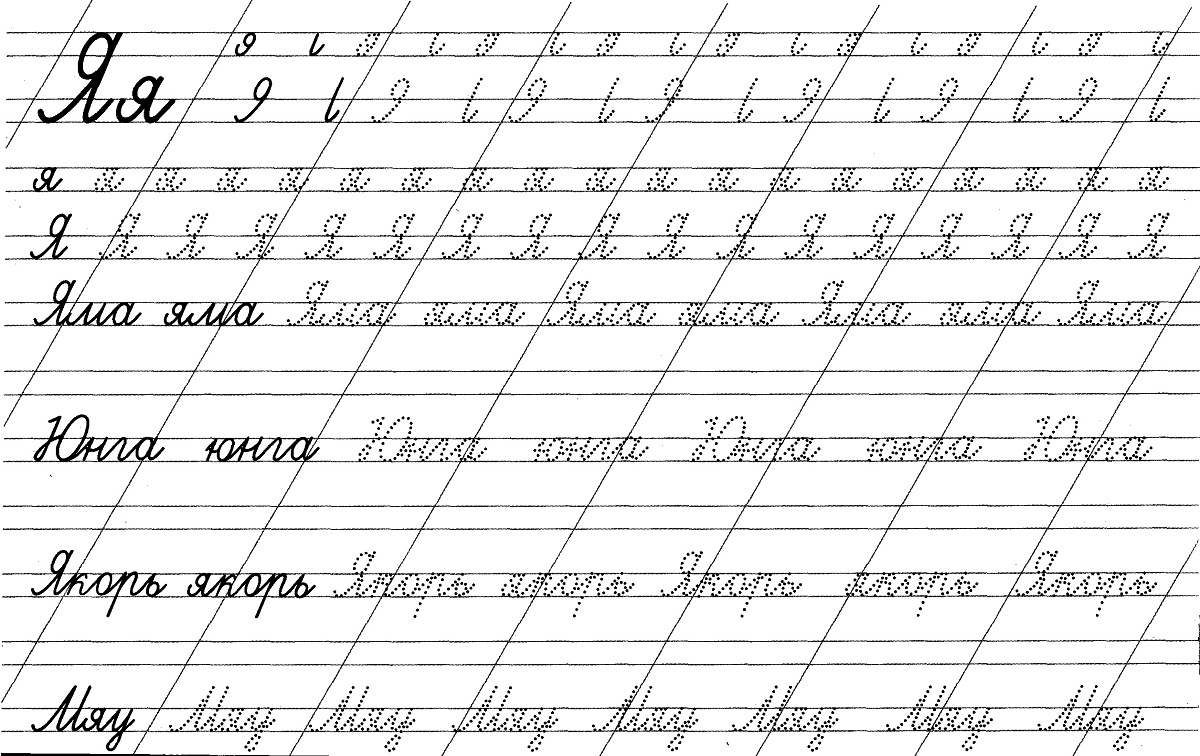 Яя
я я я я я я я я я я я я я я я я я я я
Я Я Я Я Я Я Я Я Я Я Я Я Я Я Я Я Я
Яма яма Яма яма Яма яма Яма яма Яма
Юнга юнга Юнга юнга Юнга юнга Юнга
Якорь якорь Якорь якорь Якорь якорь Якорь
Мяу Мяу Мяу Мяу Мяу Мяу Мяу Мяу